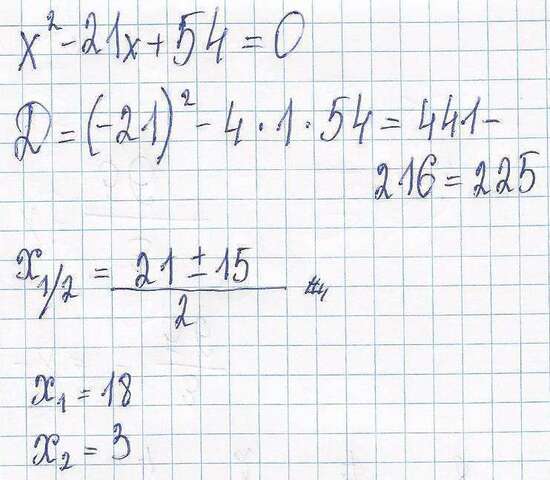 x² - 21x + 54 = 0
D = (-21)² - 4 · 1 · 54 = 441 -
216 = 225
x₁/₂ = (21 ± 15) / 2
x₁ = 18
x₂ = 3